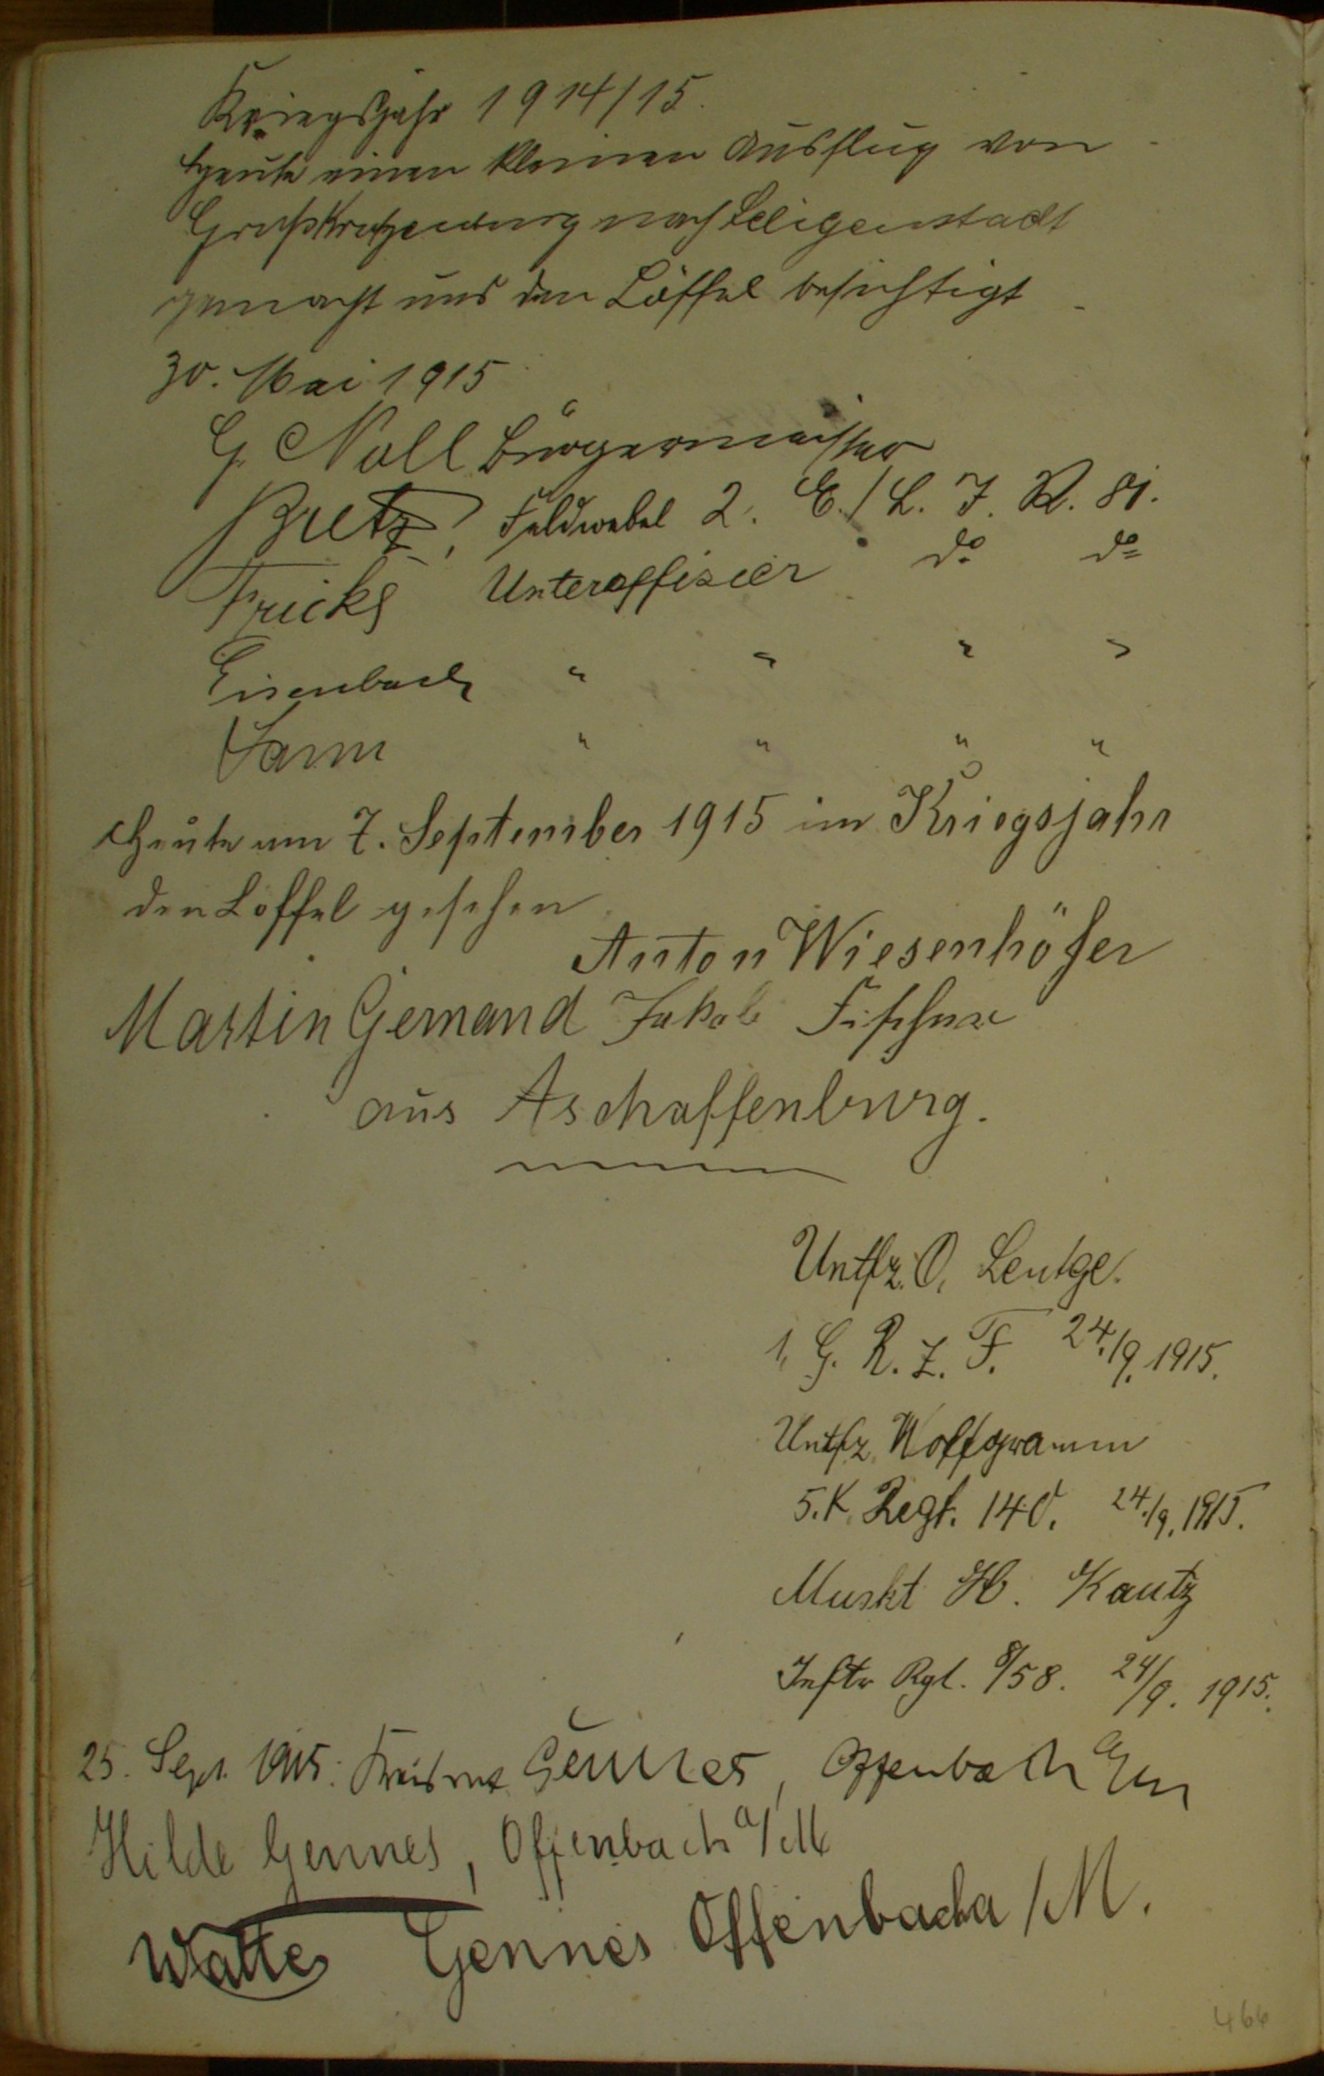 Kriegsjahr 1914/15.
Heute einen kleinen Ausflug von
Großkrotzenburg nach Seligenstadt
gemacht und den Löffel besichtigt
30. Mai 1915
G. Noll Bürgermeister
Bretz, Feldwebel 2. E./L. I. R. 81.
Fricke Unteroffizier do do
Eisenbach " " " "
" " " "
Heute am 7. September 1915 im Kriegsjahr
den Löffel gesehen
Anton Wiesenhöfer
Martin Gemand Jakob Fischer
aus Aschaffenburg.
Untfz. O. Lentge.
1. G. R. z. F. 24./9. 1915.
Untfz. Wolfgramm
5. K. Regt. 140. 24./9. 1915.
Muskt H. Kautz
Inftr Rgt. 8/58. 24/9. 1915.
25. Sept. 1915. Gennes, Offenbach
Hilde Gennes, Offenbach a/M
Walter Gennes Offenbach a/M.
466